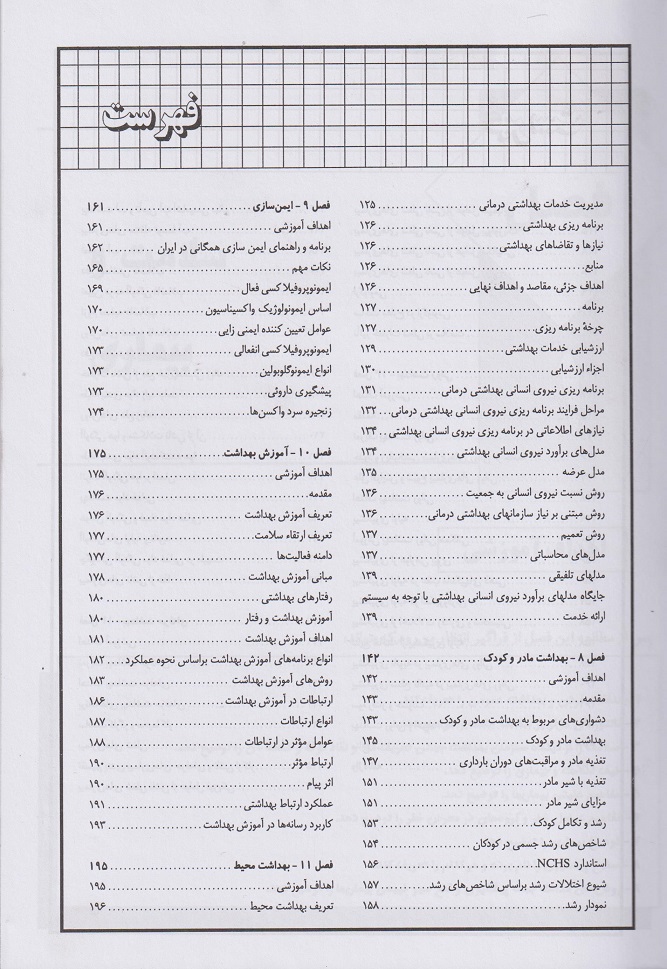 فهرست
مدیریت خدمات بهداشتی درمانی ........ ۱۲۵
برنامه ریزی بهداشتی ........ ۱۲۶
نیازها و تقاضاهای بهداشتی ........ ۱۲۶
منابع ........ ۱۲۶
اهداف جزئی، مقاصد و اهداف نهایی ........ ۱۲۶
برنامه ........ ۱۲۷
چرخۀ برنامه ریزی ........ ۱۲۷
ارزشیابی خدمات بهداشتی ........ ۱۲۹
اجزاء ارزشیابی ........ ۱۳۰
برنامه ریزی نیروی انسانی بهداشتی درمانی ........ ۱۳۱
مراحل فرایند برنامه ریزی نیروی انسانی بهداشتی درمانی ... ۱۳۲
نیازهای اطلاعاتی در برنامه ریزی نیروی انسانی بهداشتی .. ۱۳۴
مدل‌های برآورد نیروی انسانی بهداشتی ........ ۱۳۴
مدل عرضه ........ ۱۳۵
روش نسبت نیروی انسانی به جمعیت ........ ۱۳۶
روش مبتنی بر نیاز سازمانهای بهداشتی درمانی ........ ۱۳۶
روش تعمیم ........ ۱۳۷
مدل‌های محاسباتی ........ ۱۳۷
مدلهای تلفیقی ........ ۱۳۹
جایگاه مدلهای برآورد نیروی انسانی بهداشتی با توجه به سیستم
ارائه خدمت ........ ۱۳۹
فصل ۸ - بهداشت مادر و کودک ........ ۱۴۲
اهداف آموزشی ........ ۱۴۲
مقدمه ........ ۱۴۳
دشواری‌های مربوط به بهداشت مادر و کودک ........ ۱۴۳
بهداشت مادر و کودک ........ ۱۴۵
تغذیه مادر و مراقبت‌های دوران بارداری ........ ۱۴۷
تغذیه با شیر مادر ........ ۱۵۱
مزایای شیر مادر ........ ۱۵۱
رشد و تکامل کودک ........ ۱۵۳
شاخص‌های رشد جسمی در کودکان ........ ۱۵۴
استاندارد NCHS ........ ۱۵۶
شیوع اختلالات رشد براساس شاخص‌های رشد ........ ۱۵۷
نمودار رشد ........ ۱۵۸
فصل ۹ - ایمن‌سازی ........ ۱۶۱
اهداف آموزشی ........ ۱۶۱
برنامه و راهنمای ایمن سازی همگانی در ایران ........ ۱۶۲
نکات مهم ........ ۱۶۵
ایمونوپروفیلاکسی فعال ........ ۱۶۹
اساس ایمونولوژیک واکسیناسیون ........ ۱۷۰
عوامل تعیین کننده ایمنی زایی ........ ۱۷۰
ایمونوپروفیلاکسی انفعالی ........ ۱۷۳
انواع ایمونوگلوبولین ........ ۱۷۳
پیشگیری داروئی ........ ۱۷۳
زنجیره سرد واکسن‌ها ........ ۱۷۴
فصل ۱۰ - آموزش بهداشت ........ ۱۷۵
اهداف آموزشی ........ ۱۷۵
مقدمه ........ ۱۷۶
تعریف آموزش بهداشت ........ ۱۷۶
تعریف ارتقاء سلامت ........ ۱۷۷
دامنه فعالیت‌ها ........ ۱۷۷
مبانی آموزش بهداشت ........ ۱۷۸
رفتارهای بهداشتی ........ ۱۸۰
آموزش بهداشت و رفتار ........ ۱۸۰
اهداف آموزش بهداشت ........ ۱۸۱
انواع برنامه‌های آموزش بهداشت براساس نحوه عملکرد .... ۱۸۲
روش‌های آموزش بهداشت ........ ۱۸۳
ارتباطات در آموزش بهداشت ........ ۱۸۶
انواع ارتباطات ........ ۱۸۷
عوامل مؤثر در ارتباطات ........ ۱۸۸
ارتباط مؤثر ........ ۱۹۰
اثر پیام ........ ۱۹۰
عملکرد ارتباط بهداشتی ........ ۱۹۱
کاربرد رسانه‌ها در آموزش بهداشت ........ ۱۹۳
فصل ۱۱ - بهداشت محیط ........ ۱۹۵
اهداف آموزشی ........ ۱۹۵
تعریف بهداشت محیط ........ ۱۹۶